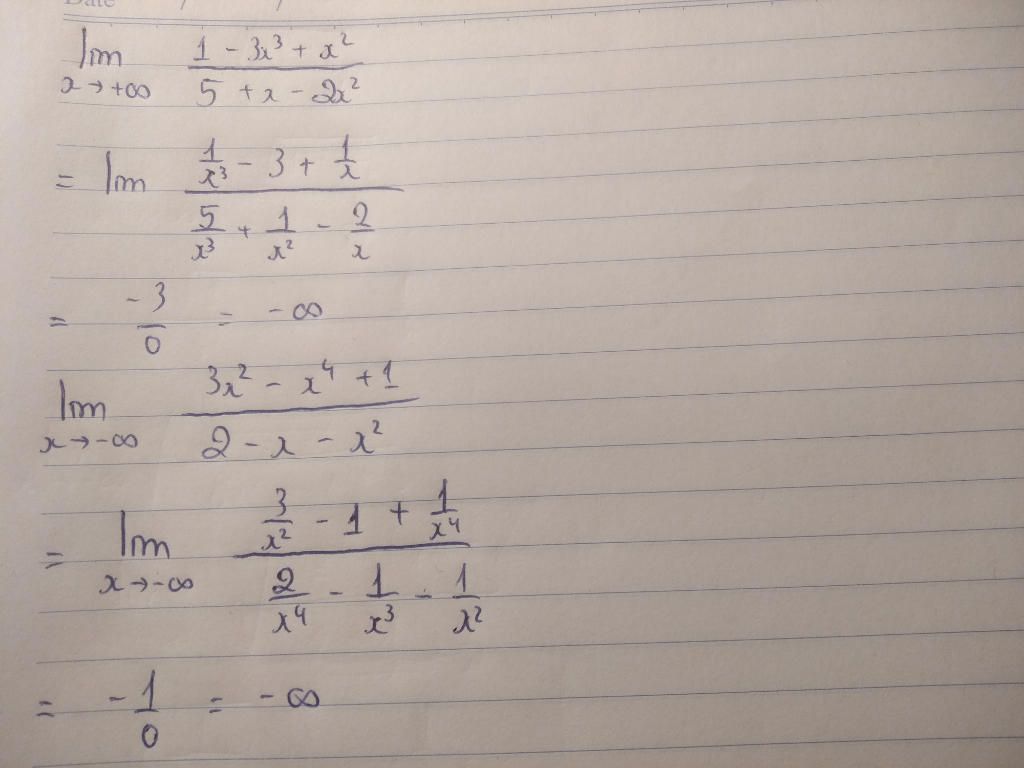 Date / /
lim x→+∞ (1 - 3x³ + x²) / (5 + x - 2x²)
= lim (1/x³ - 3 + 1/x) / (5/x³ + 1/x² - 2/x)
= -3/0 = -∞
lim x→-∞ (3x² - x⁴ + 1) / (2 - x - x²)
= lim x→-∞ (3/x² - 1 + 1/x⁴) / (2/x⁴ - 1/x³ - 1/x²)
= -1/0 = -∞